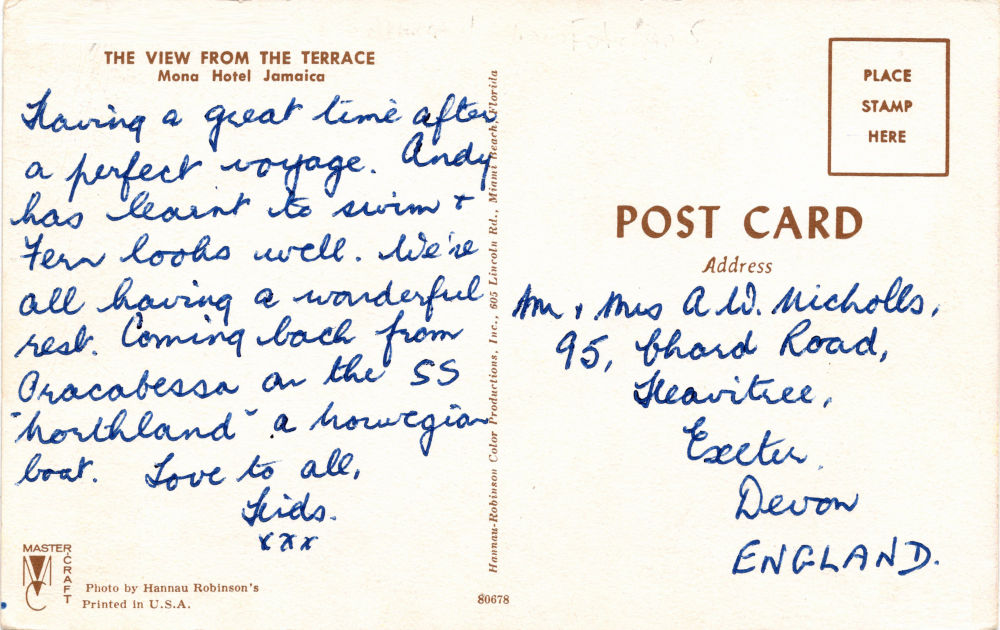 THE VIEW FROM THE TERRACE
Mona Hotel Jamaica
Having a great time after
a perfect voyage. Andy
has learnt to swim +
Fern looks well. We're
all having a wonderful
rest. Coming back from
Oracabessa on the SS
"Northland" a Norwegian
boat. Love to all,
Kids.
xxx
MASTER CRAFT
Photo by Hannau Robinson's
Printed in U.S.A.
Hannau-Robinson Color Productions, Inc., 605 Lincoln Rd., Miami Beach, Florida
80678
PLACE
STAMP
HERE
POST CARD
Address
Mr + Mrs A.W. Nicholls,
95, Chard Road,
Heavitree,
Exeter,
Devon
ENGLAND.